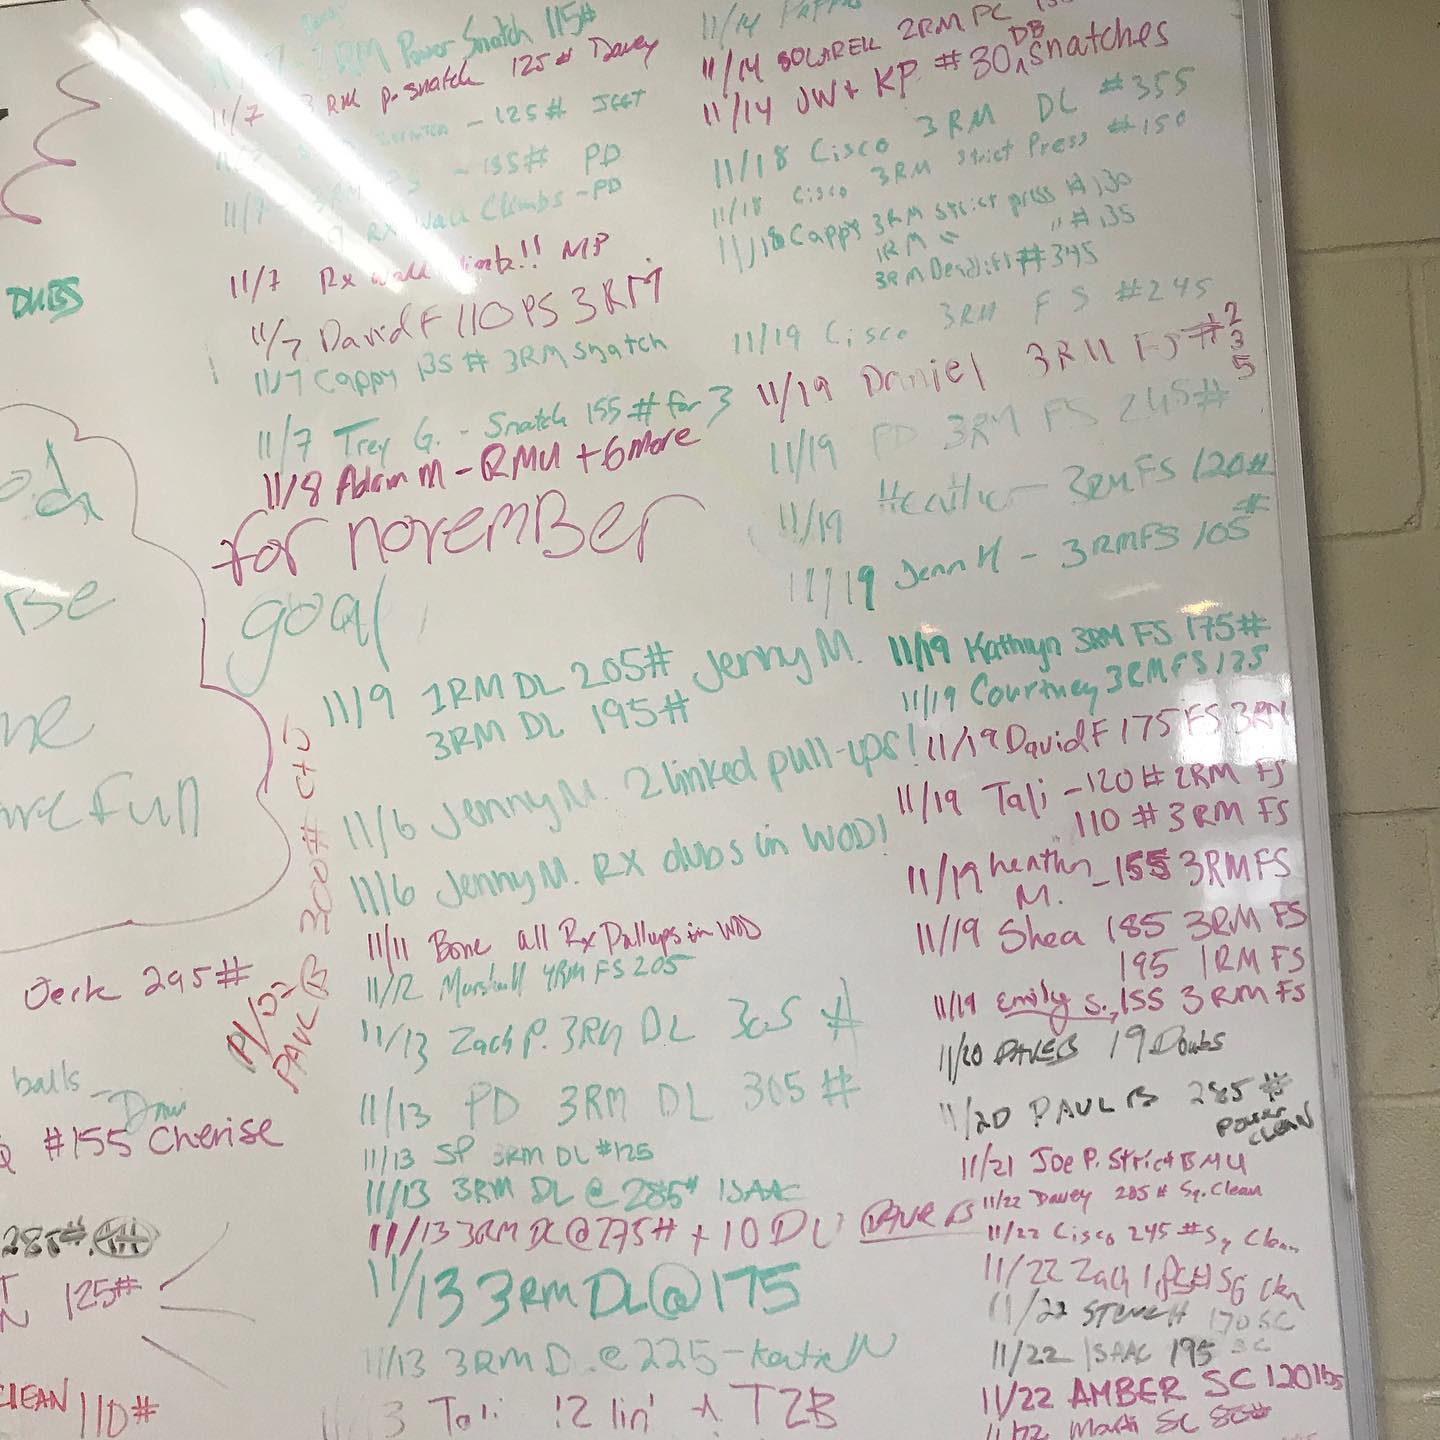 DUBS
Be
Fun
Jerk 295#
balls
#155 Cherise
285#
125#
CLEAN 110#
RM Power Snatch 115#
11/7 3 RM P. snatch 125# Davey
- 125#
- 155# PD
11/7 9 Rx Wall Climbs - PD
11/7 Rx wall climb!! MP
11/7 David F 110 PS 3RM
11/7 Cappy 135# 3RM snatch
11/7 Trey G. - Snatch 155# for 3
11/8 Adam M - RMU + 6 more
for november
goal
11/9 1RM DL 205# Jenny M.
3RM DL 195#
11/6 Jenny M. 2 linked pull-ups!
11/6 Jenny M. RX dubs in WOD!
11/11 Bone all Rx Pullups in WOD
11/12 Marshall 4RM FS 205
11/13 Zach P. 3RM DL 305 #
11/13 PD 3RM DL 305 #
11/13 SP 3RM DL #125
11/13 3RM DL @ 285# ISAAC
11/13 3RM DL @ 275# + 10 DU
11/13 3RM DL @ 175
11/13 3RM D @ 225 - Katie N
Tali T2B
PAUL B 300# C+J
11/14
11/14 SOLAREK 2RM PC
11/14 JW + KP #30 DB snatches
11/18 Cisco 3RM DL #355
11/18 Cisco 3RM Strict Press #150
11/18 Cappy 3RM strict press #130
1RM " " #135
3RM Deadlift #345
11/19 Cisco 3RM FS #245
11/19 Daniel 3RM FS #235
11/19 PD 3RM FS 245#
11/19 Heather - 3RM FS 120#
11/19 Jenn H - 3RM FS 105#
11/19 Kathryn 3RM FS 175#
11/19 Courtney 3RM FS 135
11/19 David F 175 FS 3RM
11/19 Tali - 120# 2RM FS
110 # 3RM FS
11/19 heather M. - 155 3RM FS
11/19 Shea 185 3RM FS
195 1RM FS
11/19 Emily S. 155 3RM FS
11/20 DAVE B 19 Doubs
11/20 PAUL B 285# POWER CLEAN
11/21 Joe P. Strict BMU
11/22 Davey 205# Sq. Clean
11/22 Cisco 245 # Sq Clean
11/22 Zach
11/22 170 SC
11/22 ISAAC 195 SC
11/22 AMBER SC 120 lbs
11/22 SC